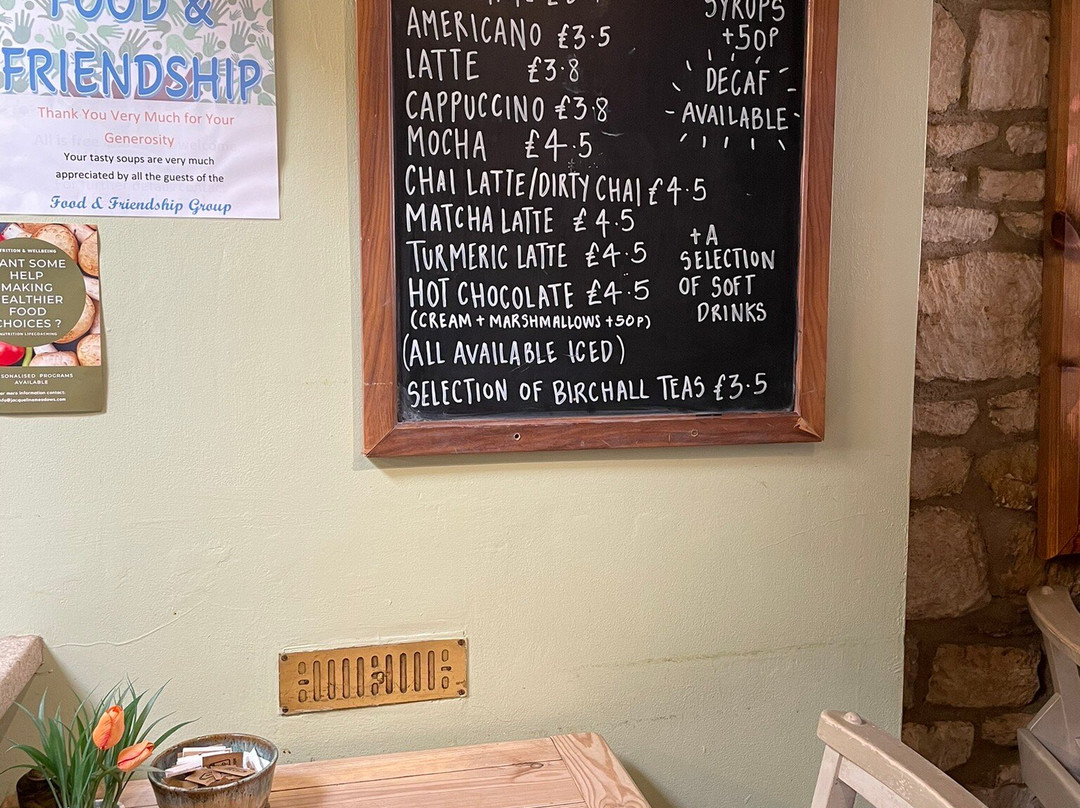 FOOD &
FRIENDSHIP
Thank You Very Much for Your
Generosity
Your tasty soups are very much
appreciated by all the guests of the
Food & Friendship Group
NUTRITION & WELLBEING
ANT SOME
HELP
MAKING
EALTHIER
FOOD
CHOICES ?
NUTRITION LIFECOACHING
SONALISED PROGRAMS
AVAILABLE
or more information contact:
AMERICANO £3.5
LATTE £3.8
CAPPUCCINO £3.8
MOCHA £4.5
CHAI LATTE/DIRTY CHAI £4.5
MATCHA LATTE £4.5
TURMERIC LATTE £4.5
HOT CHOCOLATE £4.5
(CREAM + MARSHMALLOWS +50P)
(ALL AVAILABLE ICED)
SELECTION OF BIRCHALL TEAS £3.5
SYRUPS
+50P
DECAF
AVAILABLE
+ A
SELECTION
OF SOFT
DRINKS